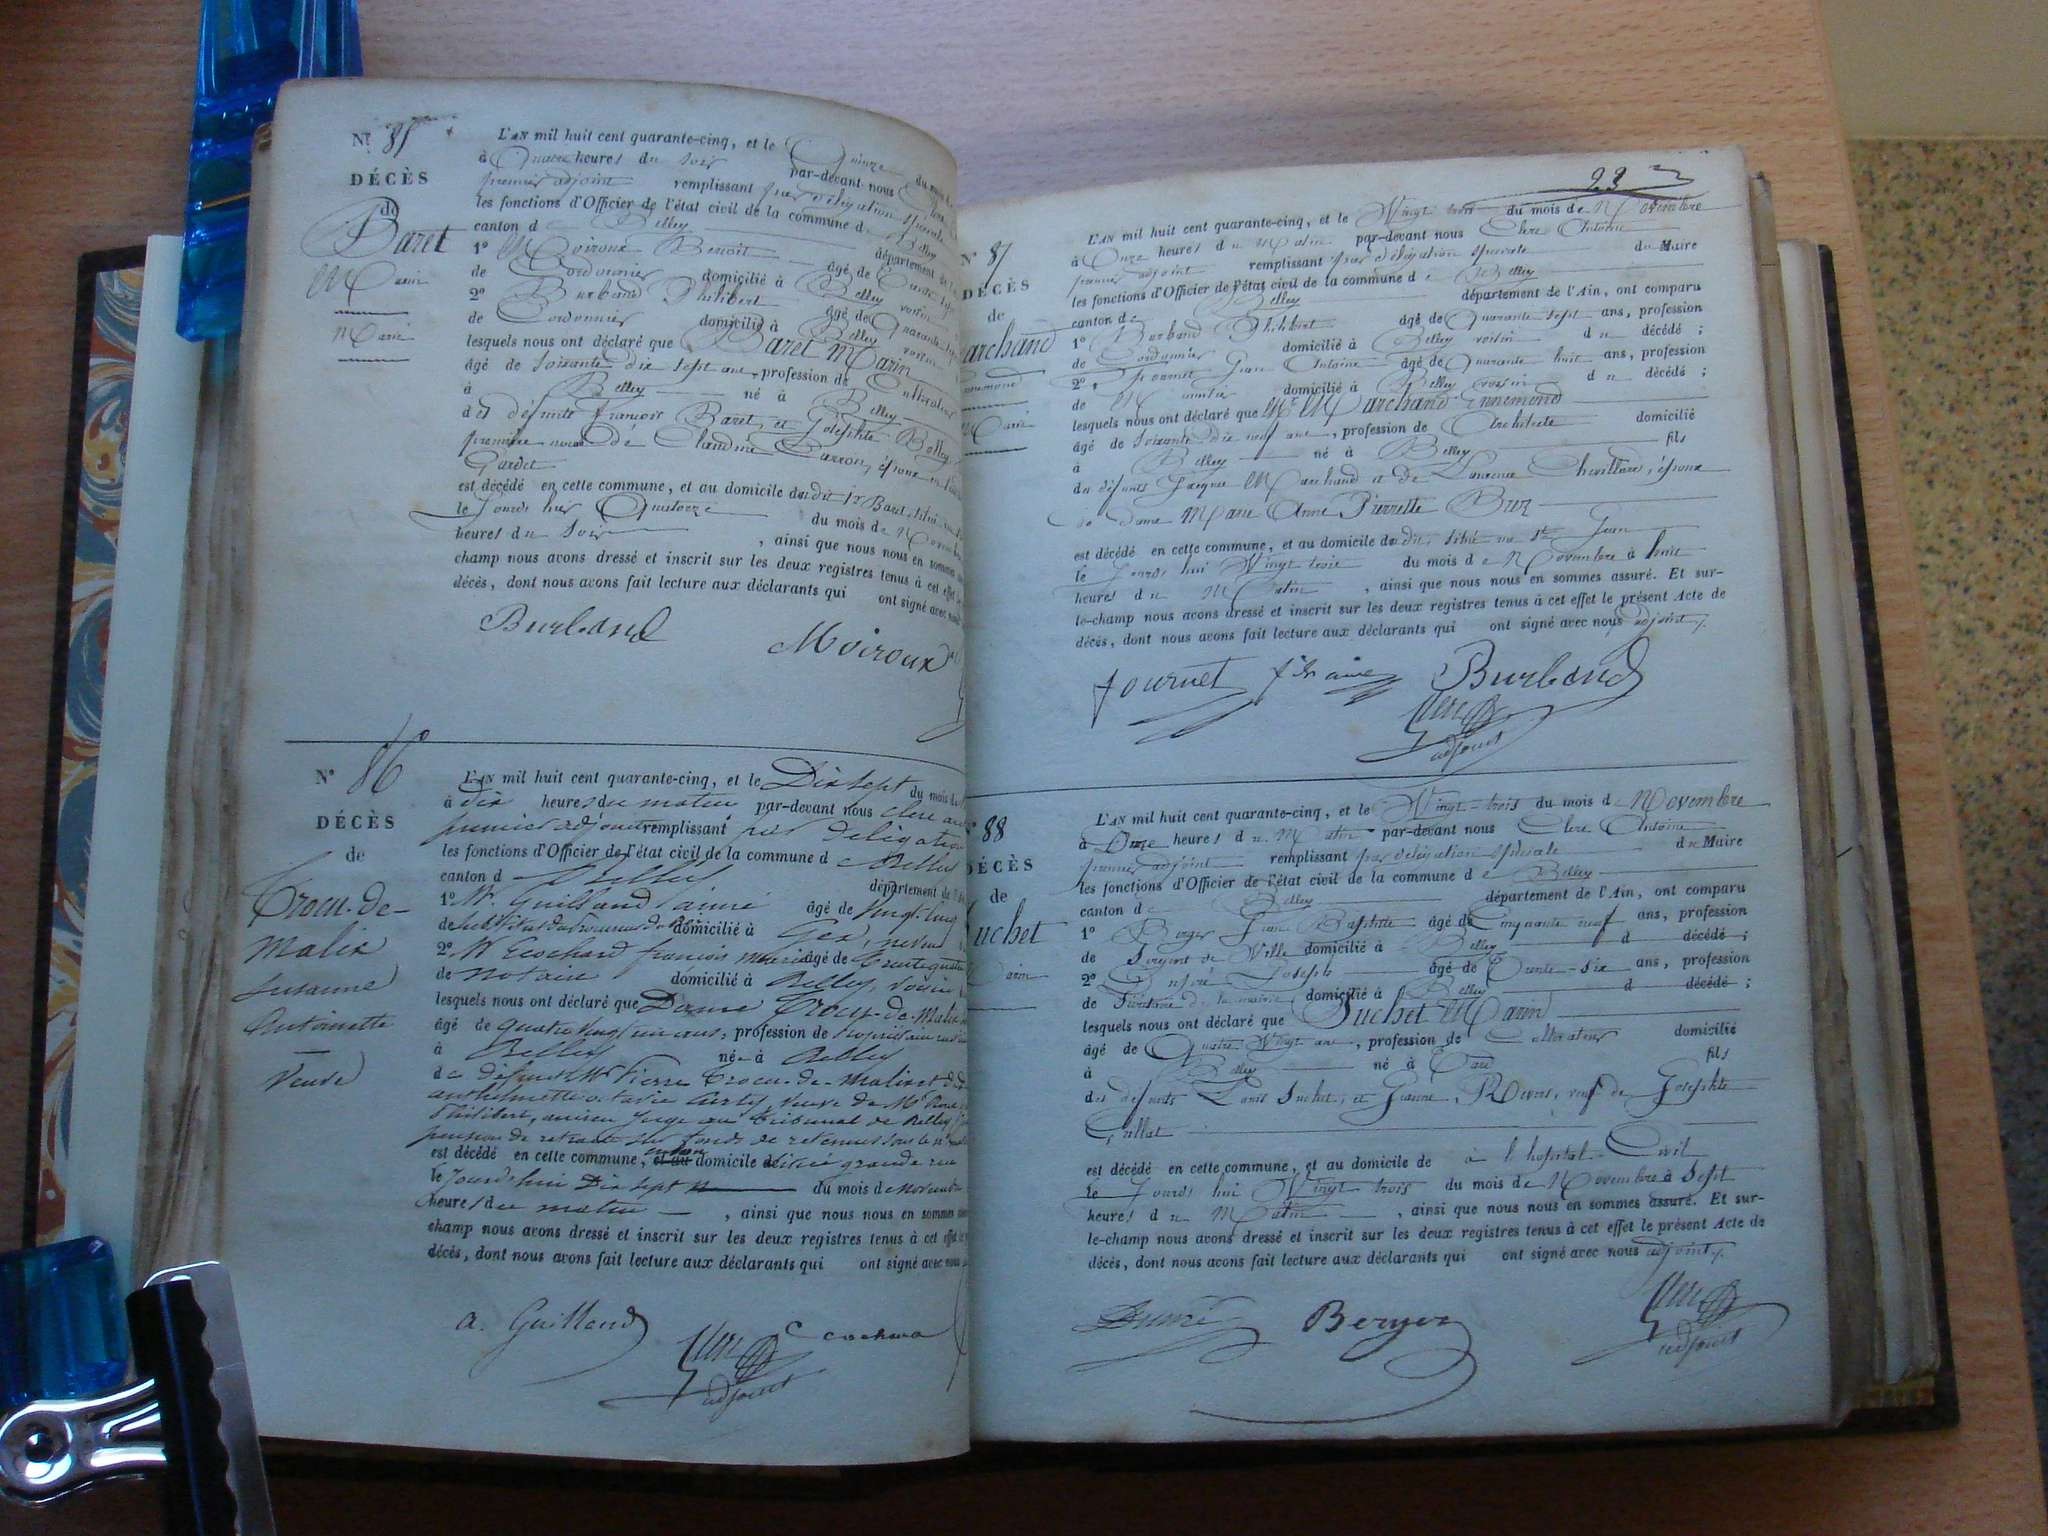 N° 85
DÉCÈS
de
Baret
Marin
Marié
L'AN mil huit cent quarante-cinq, et le Quinze du mois d
à Quatre heures du soir par-devant nous Clerc
premier adjoint remplissant par délégation spéciale
les fonctions d'Officier de l'état civil de la commune de Belley
canton de Belley département de
1° Moiroux Benoit âgé de
de Cordonnier domicilié à Belley voisin
2° Burband Philibert âgé de Quarante sept
de Cordonnier domicilié à Belley voisin
lesquels nous ont déclaré que Baret Marin
âgé de soixante dix sept ans, profession de Cultivateur
à Belley né à Belley
des défunts François Baret, et Josephte Bolley
première noces de Claudine Carron, époux en
Gardet
est décédé en cette commune, et au domicile du dit Sr Baret, situé
le Jourds hier Quatorze du mois de Novembre
heures du soir , ainsi que nous nous en sommes
champ nous avons dressé et inscrit sur les deux registres tenus à cet effet
décès, dont nous avons fait lecture aux déclarants qui ont signé avec nous
Burband Moiroux
N° 86
DÉCÈS
de
Trocu-de-
Malix
Susanne
Antoinette
Veuve
L'AN mil huit cent quarante-cinq, et le Dix sept du mois de
à dix heures du matin par-devant nous Clerc
premier adjoint remplissant par délégation
les fonctions d'Officier de l'état civil de la commune de Belley
canton de Belley département de
1° Mr Guilland aimé âgé de vingt-cinq
de substitut du Procureur du Roi domicilié à Gex, neveu
2° Mr Ecochard françois marie âgé de trente quatre
de notaire domicilié à Belley, voisin
lesquels nous ont déclaré que Dame Trocu-de-Malix
âgé de quatre vingt un ans, profession de propriétaire
à Belley née à Belley
de défunt Mr Pierre Trocu-de-Malix et de
anthelmette octavie Curty, veuve de Mr
Philibert, ancien Juge au tribunal de Belley
pension de retraite sur fonds de retenues sous le n°
est décédé en cette commune, et au domicile situé grande rue
le Jourd'hui Dix sept du mois de Novembre
heures du matin , ainsi que nous nous en sommes
champ nous avons dressé et inscrit sur les deux registres tenus à cet effet
décès, dont nous avons fait lecture aux déclarants qui ont signé avec nous
a. Guilland Clerc Ecochard
adjoint
23
N° 87
DÉCÈS
de
archand
nnemond
Marié
L'AN mil huit cent quarante-cinq, et le Vingt trois du mois de Novembre
à Onze heures du Matin par-devant nous Clerc Antoine
premier adjoint remplissant par délégation spéciale du Maire
les fonctions d'Officier de l'état civil de la commune de Belley
canton de Belley département de l'Ain, ont comparu
1° Burband Philibert âgé de Quarante sept ans, profession
de Cordonnier domicilié à Belley voisin du décédé ;
2° fournet Jean Antoine âgé de Quarante huit ans, profession
de domicilié à Belley voisin du décédé ;
lesquels nous ont déclaré que Mr Marchand Ennemond
âgé de soixante dix neuf ans, profession de Architecte domicilié
à Belley né à Belley fils
des défunts Jacques Marchand et de Laurence Chevillard, époux
de dame Marie Anne Pierrette Brez
est décédé en cette commune, et au domicile du dit, situé rue St Jean
le Jourds hui Vingt trois du mois de Novembre à huit
heures du Matin , ainsi que nous nous en sommes assuré. Et sur-
le-champ nous avons dressé et inscrit sur les deux registres tenus à cet effet le présent Acte de
décès, dont nous avons fait lecture aux déclarants qui ont signé avec nous adjoint.
fournet Burband
Clerc
adjoint
88
DÉCÈS
de
Suchet
Marin
L'AN mil huit cent quarante-cinq, et le Vingt-trois du mois de Novembre
à Onze heures du Matin par-devant nous Clerc Antoine
premier adjoint remplissant par délégation spéciale du Maire
les fonctions d'Officier de l'état civil de la commune de Belley
canton de Belley département de l'Ain, ont comparu
1° Berger Jean Baptiste âgé de Cinquante neuf ans, profession
de Sergent de Ville domicilié à Belley d décédé ;
2° Joseph âgé de Trente-six ans, profession
de Secrétaire de la mairie domicilié à Belley d décédé ;
lesquels nous ont déclaré que Suchet Marin
âgé de Quatre Vingt ans, profession de Cultivateur domicilié
à Belley né à fils
des défunts Louis Suchet, et Jeanne Rivers, veuf de Josephte
Gallat
est décédé en cette commune, et au domicile de à l'hopital Civil
le Jourds hui Vingt trois du mois de Novembre à Sept
heures du Matin , ainsi que nous nous en sommes assuré. Et sur-
le-champ nous avons dressé et inscrit sur les deux registres tenus à cet effet le présent Acte de
décès, dont nous avons fait lecture aux déclarants qui ont signé avec nous adjoint.
Berger Clerc
adjoint